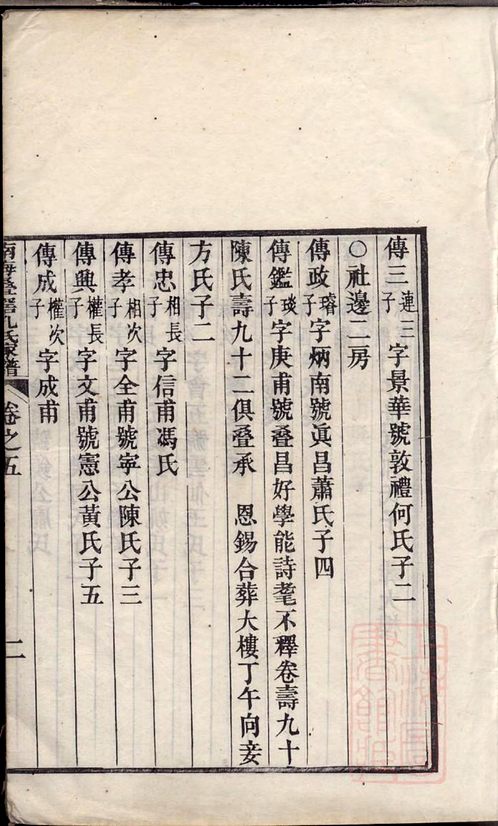 傳三連三子字景華號敦禮何氏子二
〇社邊二房
傳政璿子字炳南號眞昌蕭氏子四
傳鑑琰子字庚甫號叠昌好學能詩耄不釋卷壽九十
陳氏壽九十二俱叠承　恩錫合葬大樓丁午向妾
方氏子二
傳忠相長子字信甫馮氏
傳孝相次子字全甫號寧公陳氏子三
傳興權長子字文甫號憲公黃氏子五
傳成權次子字成甫
南海叠滘孔氏家譜　卷之五　二